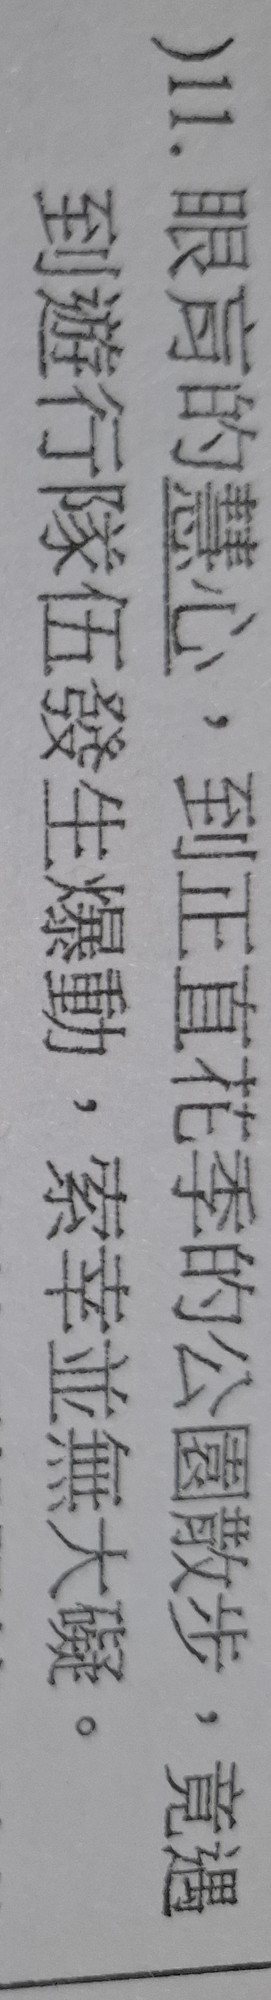 )11. 眼肓的慧心，到正直花季的公園散步，竟遇
到遊行隊伍發生爆動，索幸並無大礙。